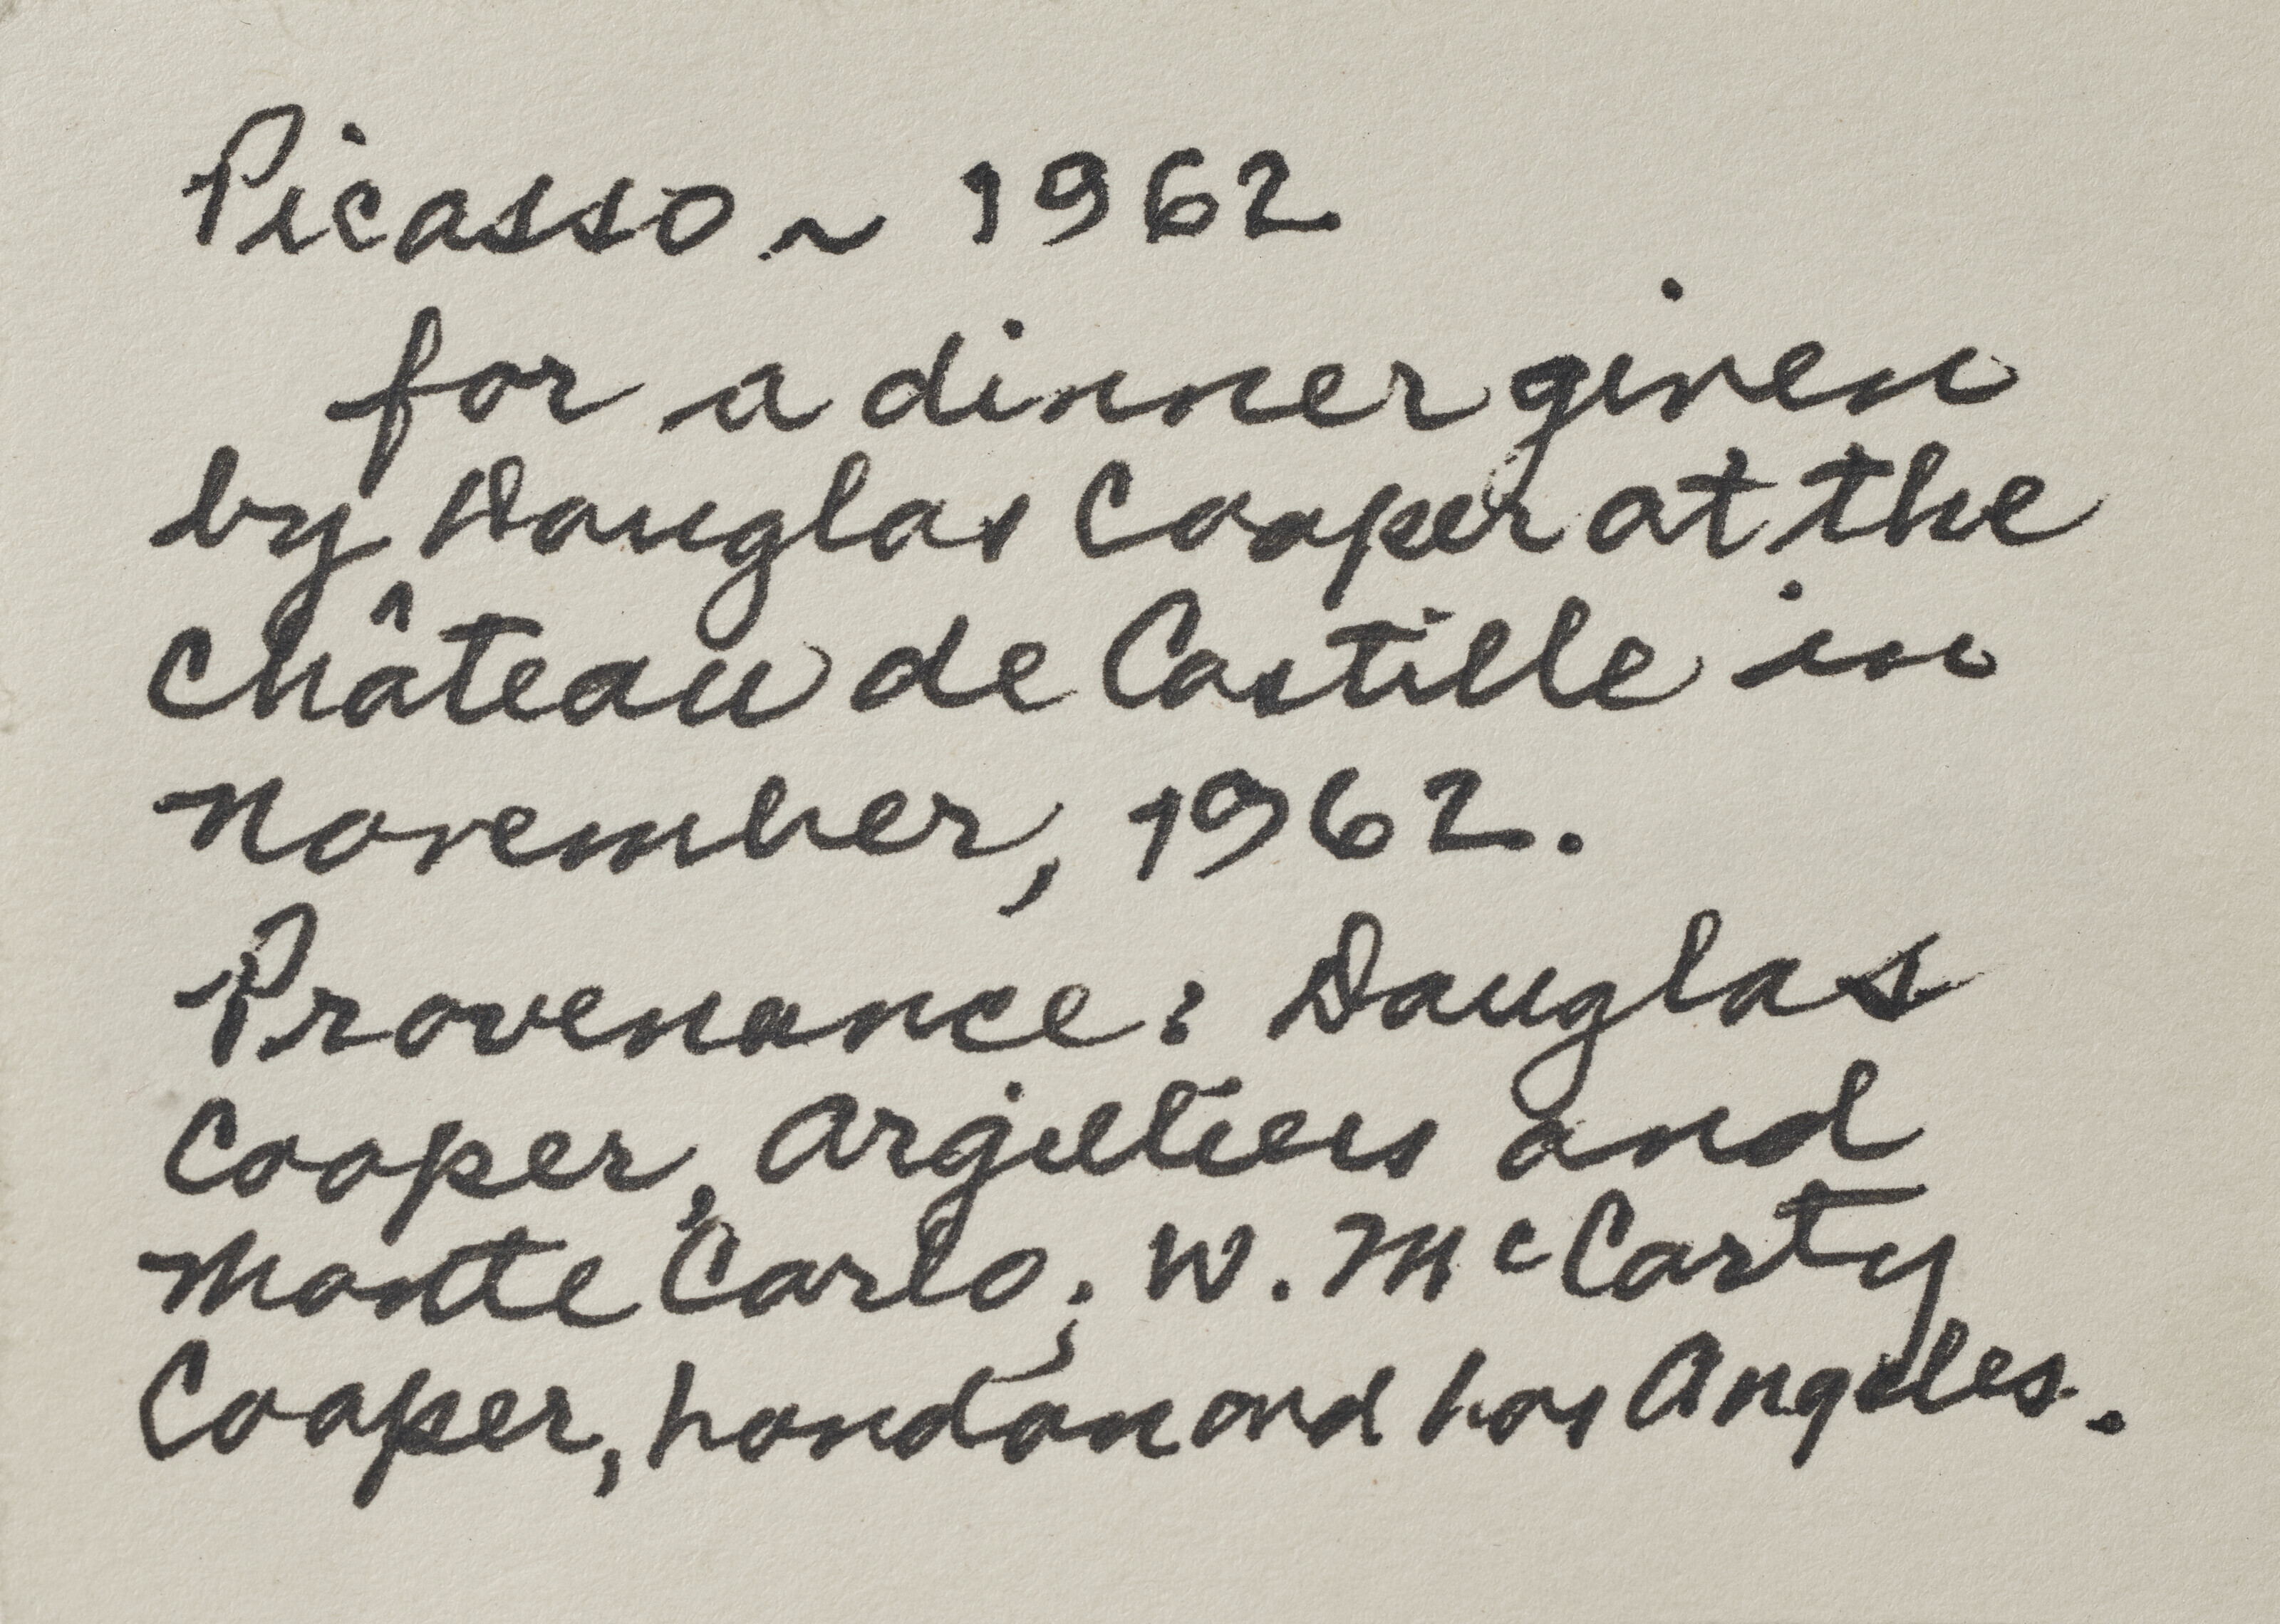 Picasso ~ 1962
for a dinner given
by Douglas Cooper at the
Château de Castille in
November, 1962.
Provenance: Douglas
Cooper, Argilliers and
Monte Carlo; W. McCarty
Cooper, London and Los Angeles.